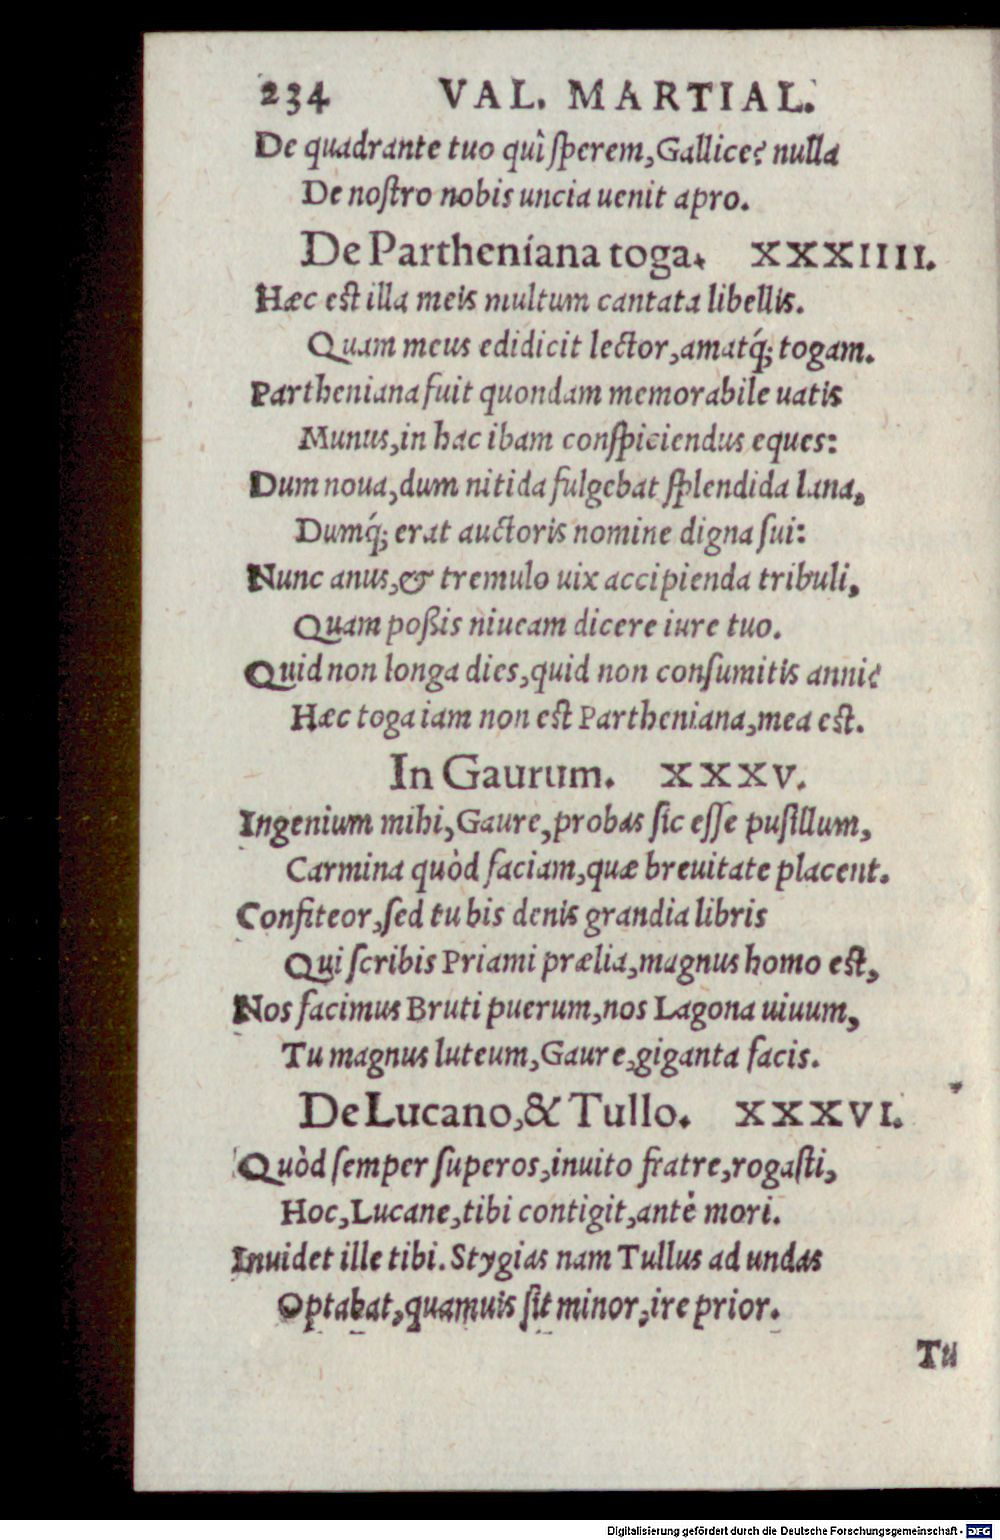 234 VAL. MARTIAL.
De quadrante tuo quì ſperem, Gallice? nulla
De noſtro nobis uncia uenit apro.
De Partheniana toga. XXXIIII.
Hæc eſt illa meis multum cantata libellis.
Quam meus edidicit lector, amatq́; togam.
Partheniana fuit quondam memorabile uatis
Munus, in hac ibam conſpiciendus eques:
Dum noua, dum nitida fulgebat ſplendida lana,
Dumq́; erat auctoris nomine digna ſui:
Nunc anus, & tremulo uix accipienda tribuli,
Quam poßis niueam dicere iure tuo.
Quid non longa dies, quid non conſumitis anni?
Hæc toga iam non eſt Partheniana, mea eſt.
In Gaurum. XXXV.
Ingenium mihi, Gaure, probas ſic eſſe puſillum,
Carmina quòd faciam, quæ breuitate placent.
Confiteor, ſed tu bis denis grandia libris
Qui ſcribis Priami prælia, magnus homo eſt,
Nos facimus Bruti puerum, nos Lagona uiuum,
Tu magnus luteum, Gaure, giganta facis.
De Lucano, & Tullo. XXXVI.
Quòd ſemper ſuperos, inuito fratre, rogaſti,
Hoc, Lucane, tibi contigit, antè mori.
Inuidet ille tibi. Stygias nam Tullus ad undas
Optabat, quamuis ſit minor, ire prior.
Tu
Digitalisierung gefördert durch die Deutsche Forschungsgemeinschaft - DFG